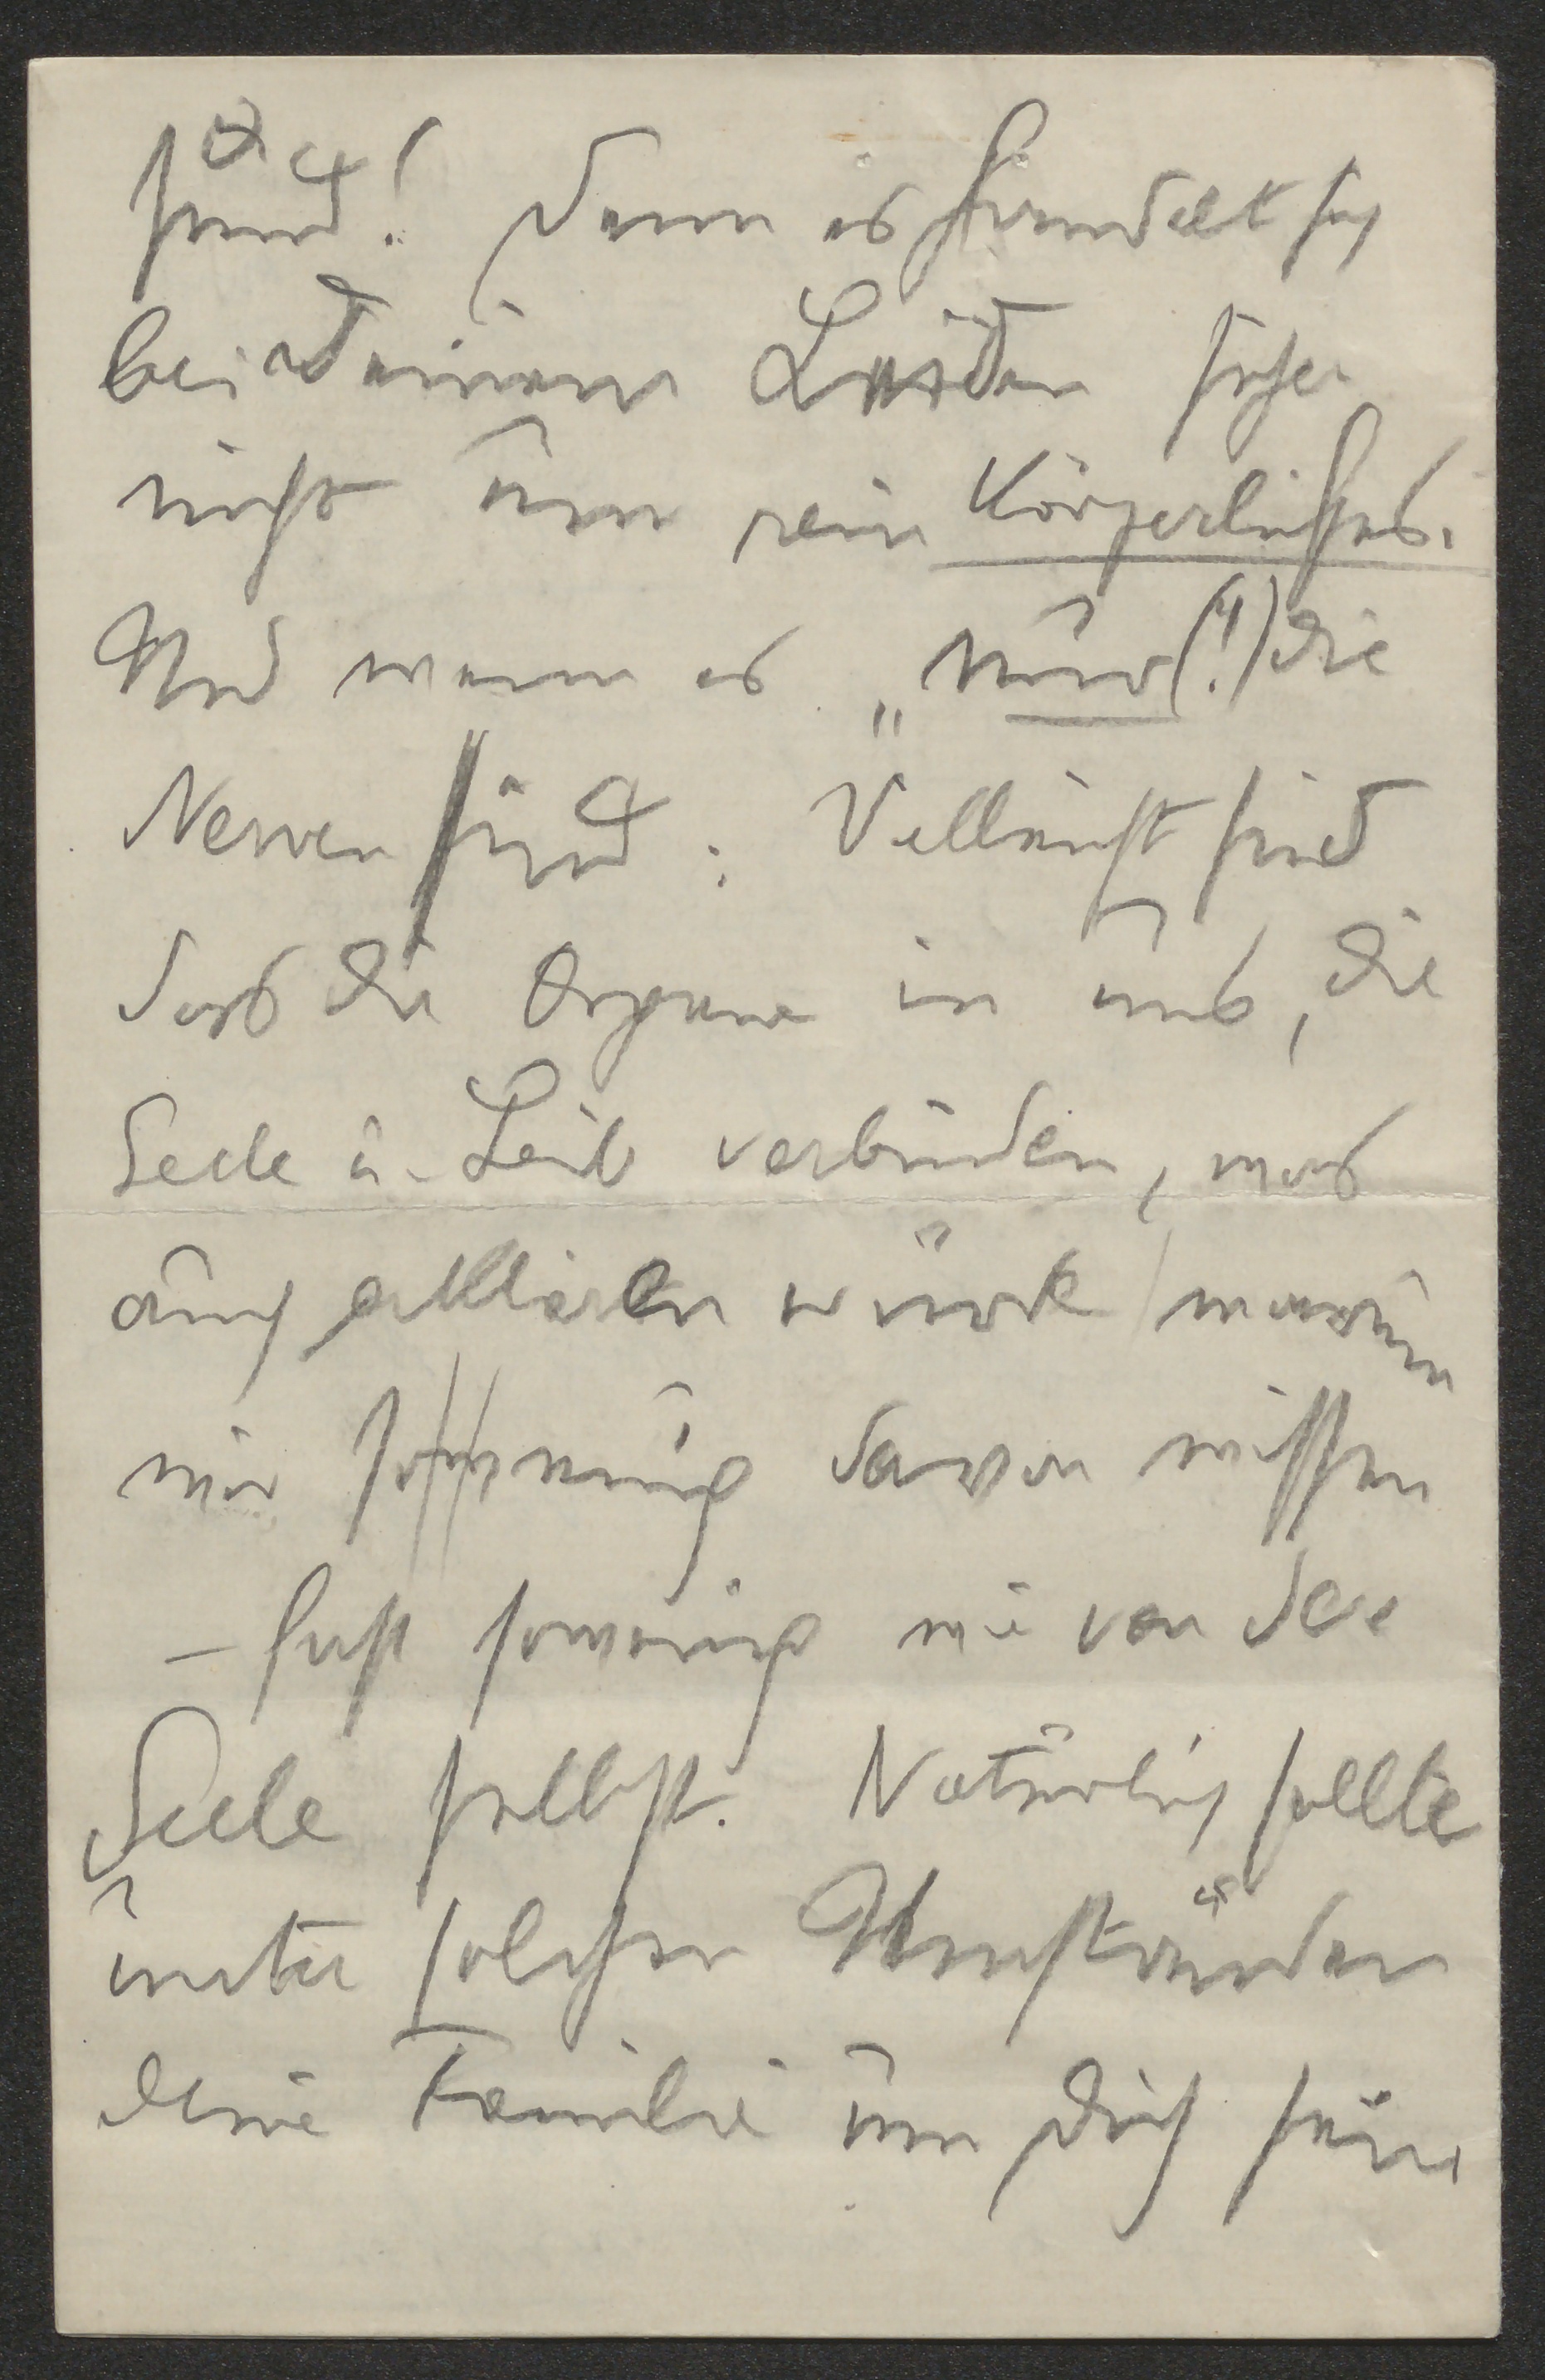 sind! Denn es handelt sich
bei deinem Leiden sicher
nicht um rein Körperliches.
Und wenn es „nur(!) die
Nerven sind: Vielleicht sind
das die Organe in uns, die
Seele u. Leib verbinden, was
auch erklären würde, warum
wir so wenig davon wissen
– fast so wenig wie von der
Seele selbst. Natürlich sollte
unter solchen Umständen
deine Familie um dich sein